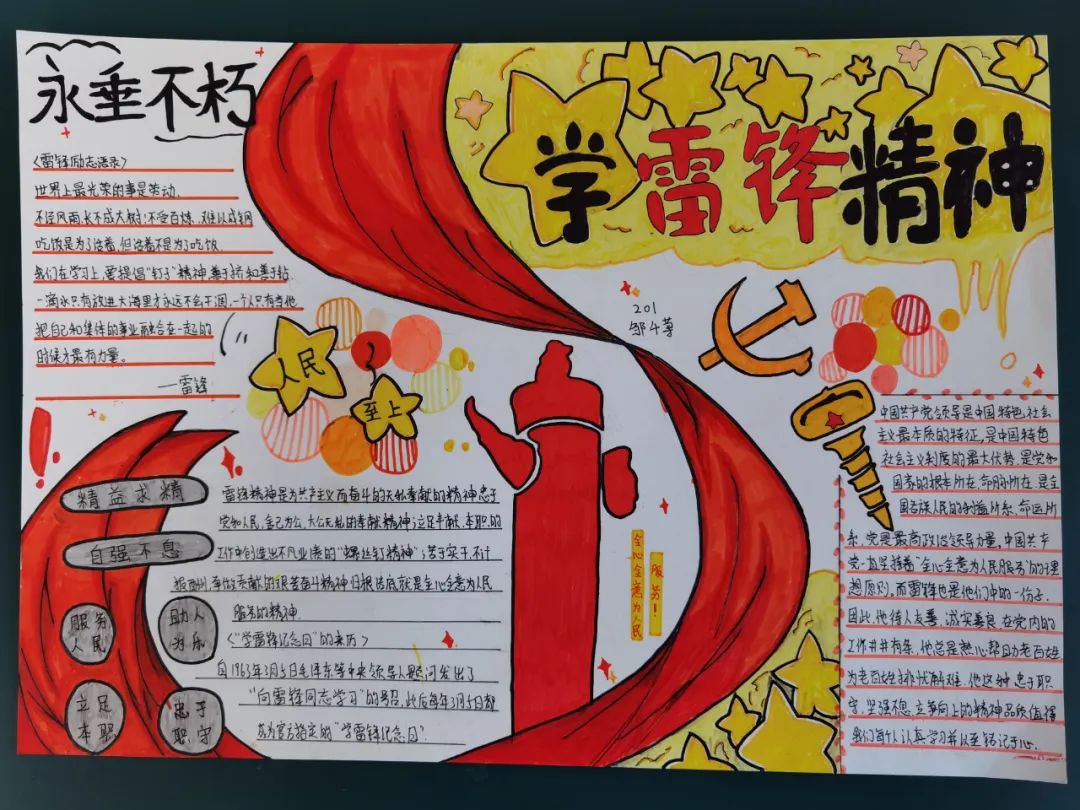 永垂不朽
学雷锋精神
《雷锋励志语录》
世界上最光荣的事是劳动.
不经风雨,长不成大树;不受百炼,难以成钢
吃饭是为了活着,但活着不是为了吃饭.
我们在学习上,要提倡"钉子"精神,善于挤和善于钻.
一滴水只有放进大海里才永远不会干涸,一个人只有当他
把自己和集体的事业融合在一起的
时候才最有力量。
——雷锋
201
邹斗芽
人民
至上
精益求精
自强不息
服务
人民
助人
为乐
立足
本职
忠于
职守
雷锋精神是为共产主义而奋斗的无私奉献的精神;忠于
党和人民,舍己为公,大公无私的奉献精神;立足本职,在平凡的
工作中创造出不凡业绩的"螺丝钉精神";苦干实干,不计
报酬,争做贡献的艰苦奋斗精神归根结底就是全心全意为人民
服务的精神.
《"学雷锋纪念日"的来历》
自1963年3月5日毛泽东等中央领导人题词发出了
"向雷锋同志学习"的号召,此后每年3月5日都
成为官方指定的"学雷锋纪念日".
全心全意为人民
服务!
中国共产党领导是中国特色社会
主义最本质的特征,是中国特色
社会主义制度的最大优势,是党和
国家的根本所在、命脉所在,是全
国各族人民的利益所系、命运所
系,党是最高政治领导力量。中国共产
党一直坚持着"全心全意为人民服务"的理
想原则。而雷锋也是他们中的一份子.
因此,他待人友善,诚实善良,在党内的
工作井井有条,他总是热心帮助老百姓
为老百姓排忧解难.他这种忠于职
守,坚强不息,立争向上的精神品质值得
我们每个人认真学习并从至铭记于心.